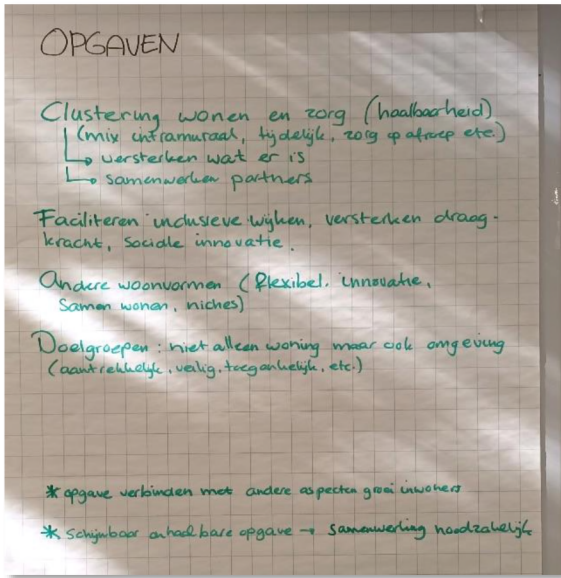 OPGAVEN
Clustering wonen en zorg (haalbaarheid)
(mix intramuraal, tijdelijk, zorg op afroep etc.)
↳ versterken wat er is
↳ samenwerken partners
Faciliteren inclusieve wijken, versterken draag-
kracht, sociale innovatie.
Andere woonvormen (flexibel, innovatie,
Samen wonen, niches)
Doelgroepen: niet alleen woning maar ook omgeving
(aantrekkelijk, veilig, toegankelijk, etc.)
* opgave verbinden met andere aspecten groei inwoners
* schijnbaar onhaalbare opgave → samenwerking noodzakelijk